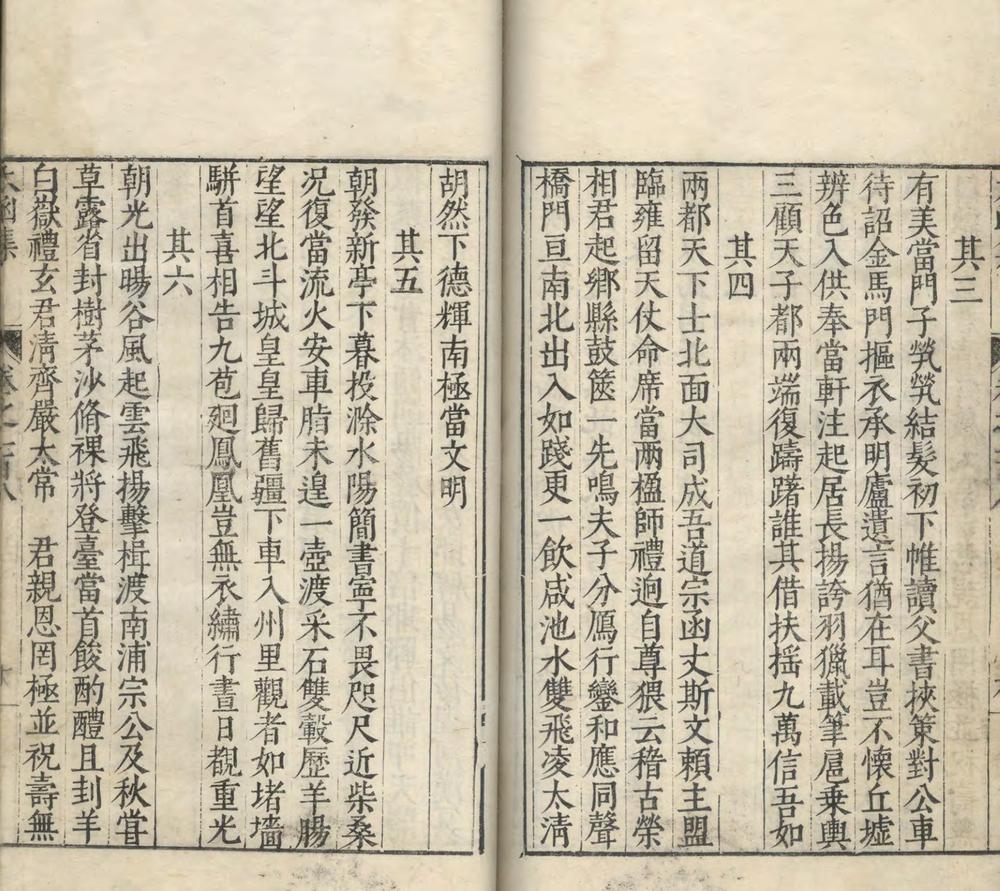 其三
有美當門子煢煢結髮初下帷讀父書挾策對公車
待詔金馬門摳衣承明廬遺言猶在耳豈不懷丘墟
辨色入供奉當軒注起居長揚誇羽獵載筆扈乘輿
三顧天子都兩端復躊躇誰其借扶搖九萬信吾如
其四
兩都天下士北面大司成吾道宗函丈斯文頼主盟
臨雍留天仗命席當兩楹師禮迥自尊猥云稽古榮
相君起鄉縣鼓篋一先鳴夫子分鴈行鑾和應同聲
橋門亘南北出入如踐更一飲咸池水雙飛凌太清
胡然下德輝南極當文明
其五
朝發新亭下暮投滁水陽簡書寧不畏咫尺近柴桑
況復當流火安車脂未遑一壺渡采石雙轂歷羊腸
望望北斗城皇皇歸舊疆下車入州里觀者如堵墻
駢首喜相告九苞廻鳳凰豈無衣繡行晝日覩重光
其六
朝光出暘谷風起雲飛揚擊楫渡南浦宗公及秋甞
草露省封樹茅沙脩祼將登臺當首餕酌醴且刲羊
白嶽禮玄君淸齊嚴太常　君親恩罔極並祝壽無
太函集
卷之一百八